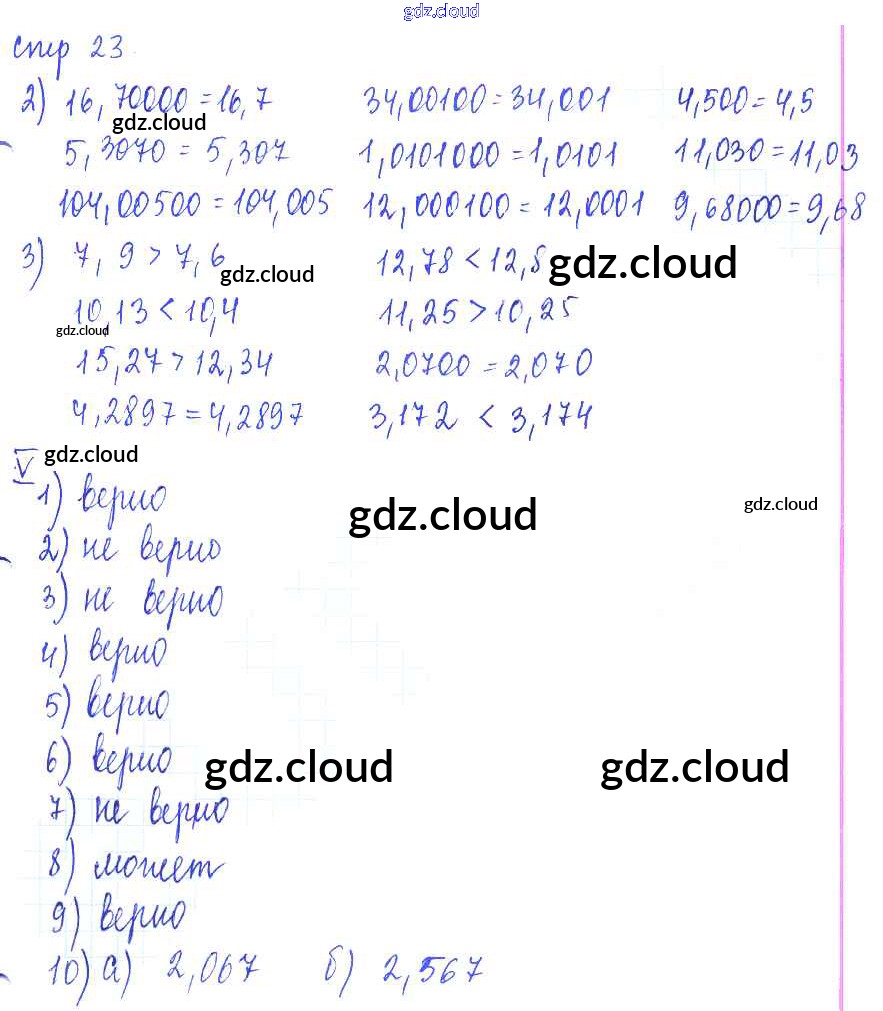 gdz.cloud
стр 23
2) 16,70000 = 16,7 34,00100 = 34,001 4,500 = 4,5
gdz.cloud
5,3070 = 5,307 1,0101000 = 1,0101 11,030 = 11,03
104,00500 = 104,005 12,000100 = 12,0001 9,68000 = 9,68
3) 7,9 > 7,6 gdz.cloud 12,78 < 12,8 gdz.cloud
10,13 < 10,4 11,25 > 10,25
gdz.cloud
15,27 > 12,34 2,0700 = 2,070
4,2897 = 4,2897 3,172 < 3,174
V gdz.cloud
1) верно gdz.cloud gdz.cloud
2) не верно
3) не верно
4) верно
5) верно
6) верно gdz.cloud gdz.cloud
7) не верно
8) может
9) верно
10) а) 2,067 б) 2,567